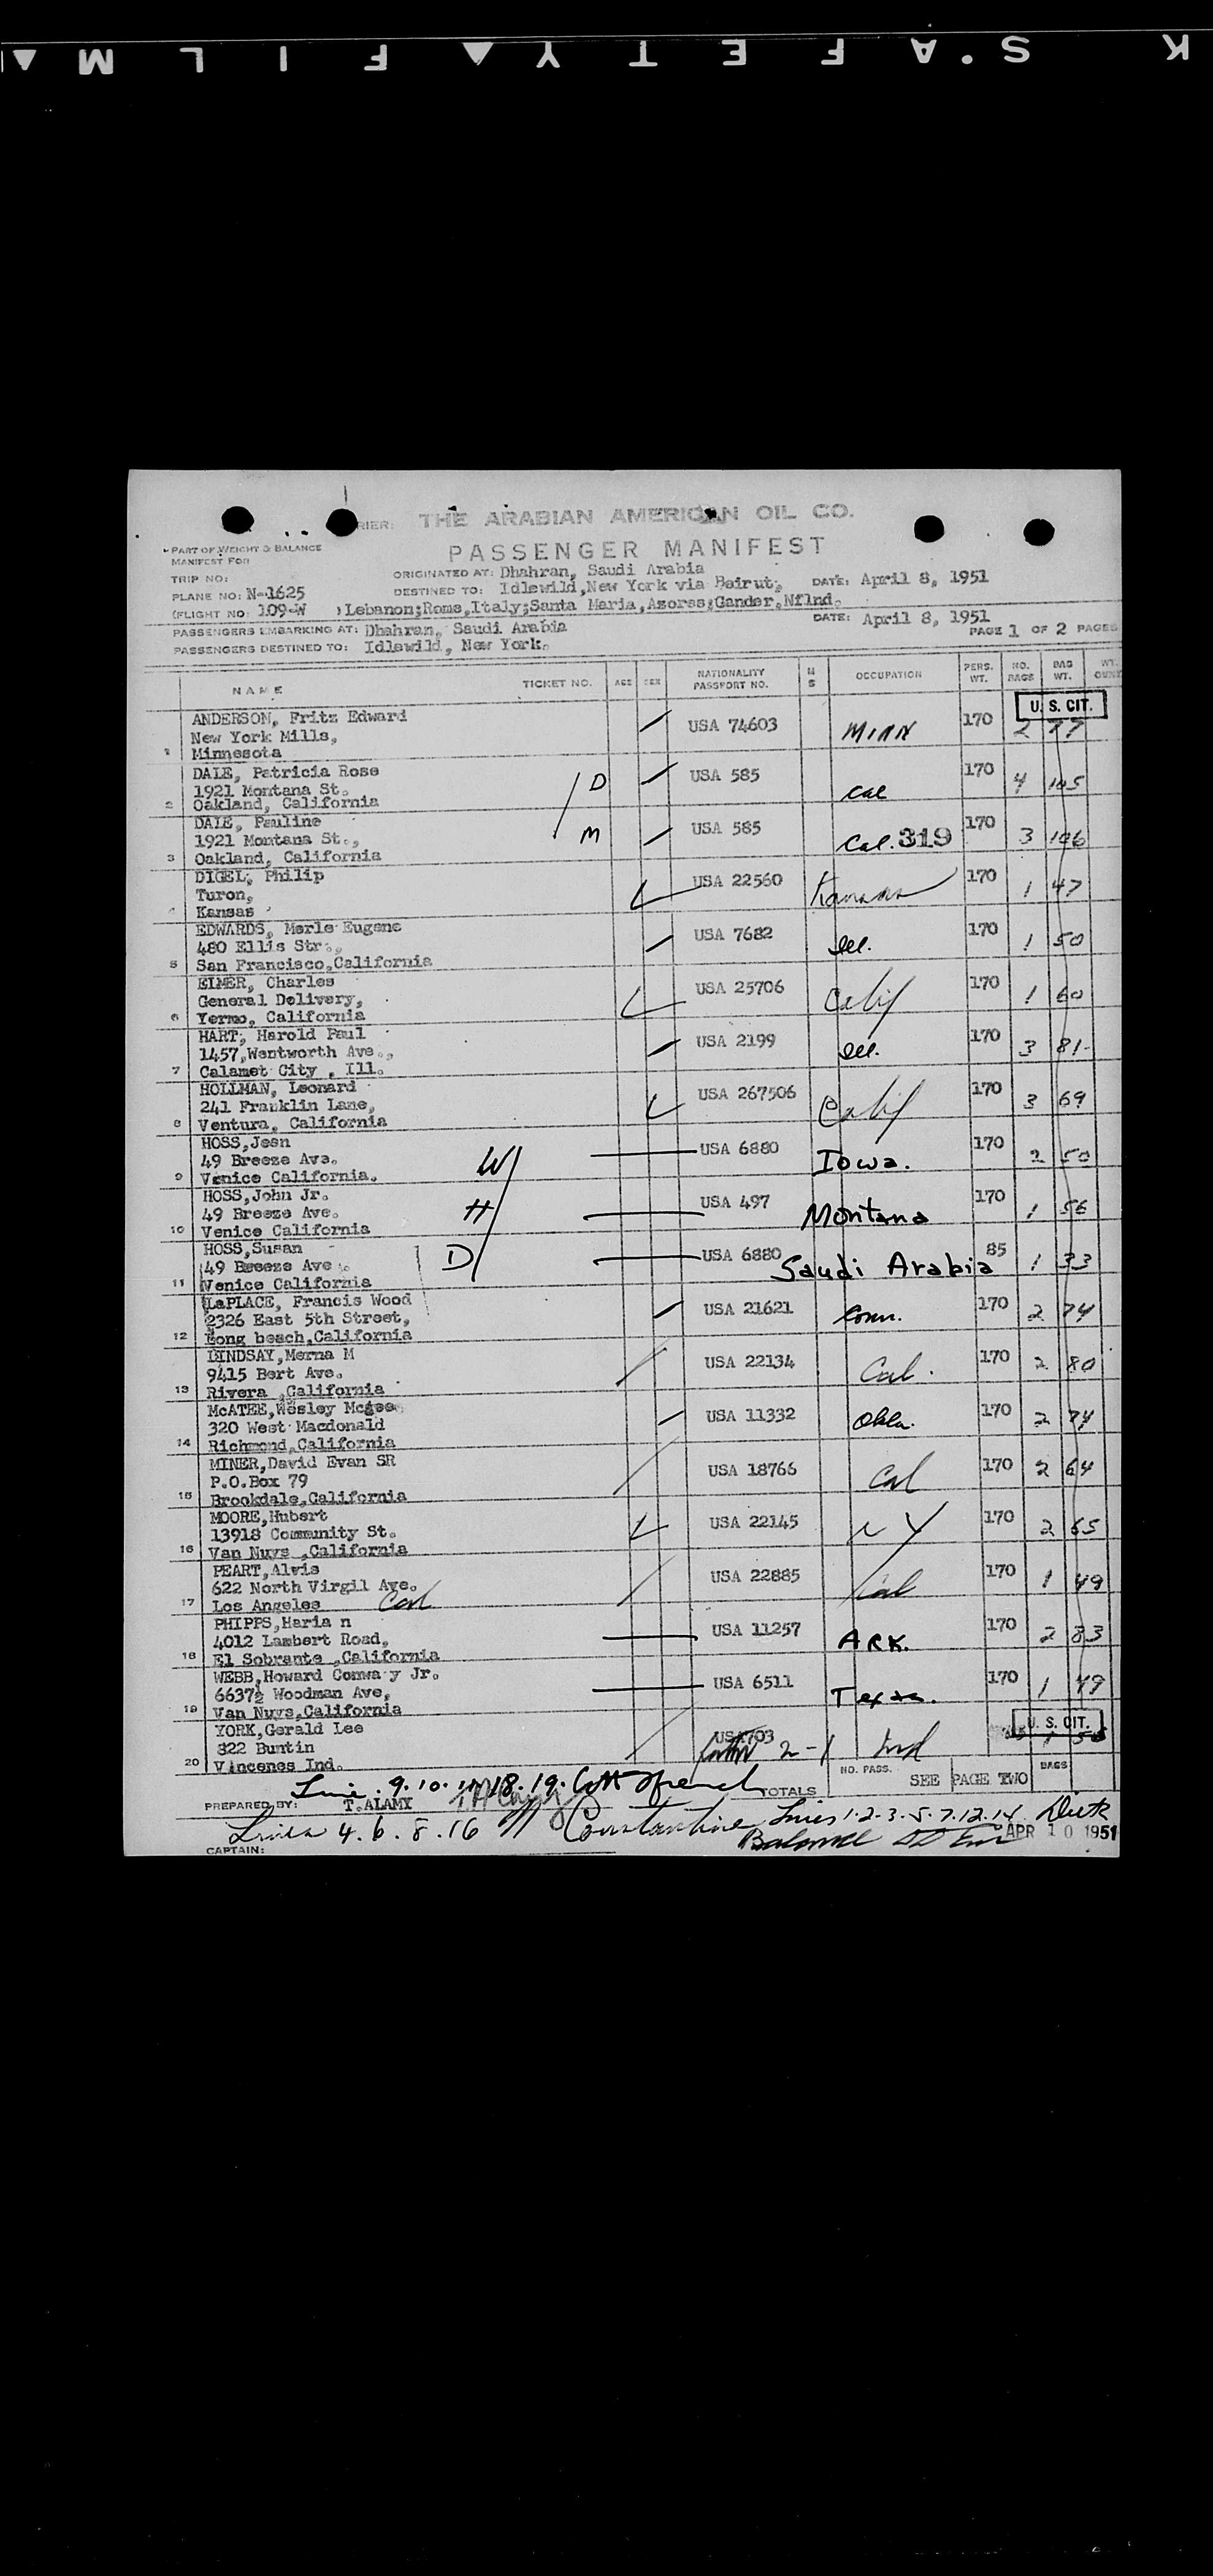 K S.A F E T Y ▲ F I L M ▲
CARRIER: THE ARABIAN AMERICAN OIL CO.
PART OF WEIGHT & BALANCE
MANIFEST FOR
PASSENGER MANIFEST
TRIP NO:
ORIGINATED AT: Dhahran, Saudi Arabia
PLANE NO: N-1625 DESTINED TO: Idlewild, New York via Beirut, DATE: April 8, 1951
(FLIGHT NO. 109-W ) Lebanon;Rome,Italy;Santa Maria,Azores;Gander.Nflnd.
PASSENGERS EMBARKING AT: Dhahran, Saudi Arabia DATE: April 8, 1951
PASSENGERS DESTINED TO: Idlewild, New York. PAGE 1 OF 2 PAGES
NAME TICKET NO. AGE SEX NATIONALITY PASSPORT NO. M S OCCUPATION PERS. WT. NO. BAGS BAG WT. WT.
U. S. CIT.
ANDERSON, Fritz Edward
New York Mills, USA 74603 MINN 170 2 77
1 Minnesota
DALE, Patricia Rose
1921 Montana St. D USA 585 Cal 170 4 105
2 Oakland, California
DALE, Pauline
1921 Montana St., M USA 585 Cal. 319 170 3 106
3 Oakland, California
DIGEL, Philip
Turon, USA 22560 Kansas 170 1 47
4 Kansas
EDWARDS, Merle Eugene
480 Ellis Str., USA 7682 Ill. 170 1 50
5 San Francisco,California
EIMER, Charles
General Delivery, USA 25706 Calif 170 1 60
6 Yermo, California
HART, Harold Paul
1457,Wentworth Ave., USA 2199 Ill. 170 3 81
7 Calamet City , Ill.
HOLLMAN, Leonard
241 Franklin Lane, USA 267506 Calif 170 3 69
8 Ventura, California
HOSS,Jean
49 Breeze Ave. W USA 6880 Iowa. 170 2 50
9 Venice California.
HOSS,John Jr.
49 Breeze Ave. H USA 497 Montana 170 1 56
10 Venice California
HOSS,Susan
49 Breeze Ave. D USA 6880 Saudi Arabia 85 1 33
11 Venice California
LaPLACE, Francis Wood
2326 East 5th Street, USA 21621 Conn. 170 2 74
12 Long beach,California
LINDSAY,Merna M
9415 Bert Ave. USA 22134 Cal. 170 2 80
13 Rivera ,California
McATEE,Wesley Mcgee
320 West Macdonald USA 11332 Okla. 170 2 74
14 Richmond,California
MINER,David Evan SR
P.O.Box 79 USA 18766 Cal 170 2 64
15 Brookdale,California
MOORE,Hubert
13918 Community St. USA 22145 N Y 170 2 65
16 Van Nuys ,California
PEART,Alvis
622 North Virgil Ave. USA 22885 Cal 170 1 49
17 Los Angeles Cal
PHIPPS,Haria n
4012 Lambert Road, USA 11257 ARK. 170 2 83
18 El Sobrante ,California
WEBB,Howard Conwa y Jr.
6637½ Woodman Ave, USA 6511 Texas. 170 1 49
19 Van Nuys,California
YORK,Gerald Lee U. S. CIT.
322 Buntin USA 703 2-1 Ind 1
20 Vincenes Ind.
Line 9.10.11.18.19. TOTALS NO. PASS. SEE PAGE TWO BAGS
PREPARED BY: T.ALAMY
Lines 4.6.8.16 Constantine Lines 1-2-3-5-7.12.14
Balance APR 10 1951
CAPTAIN: